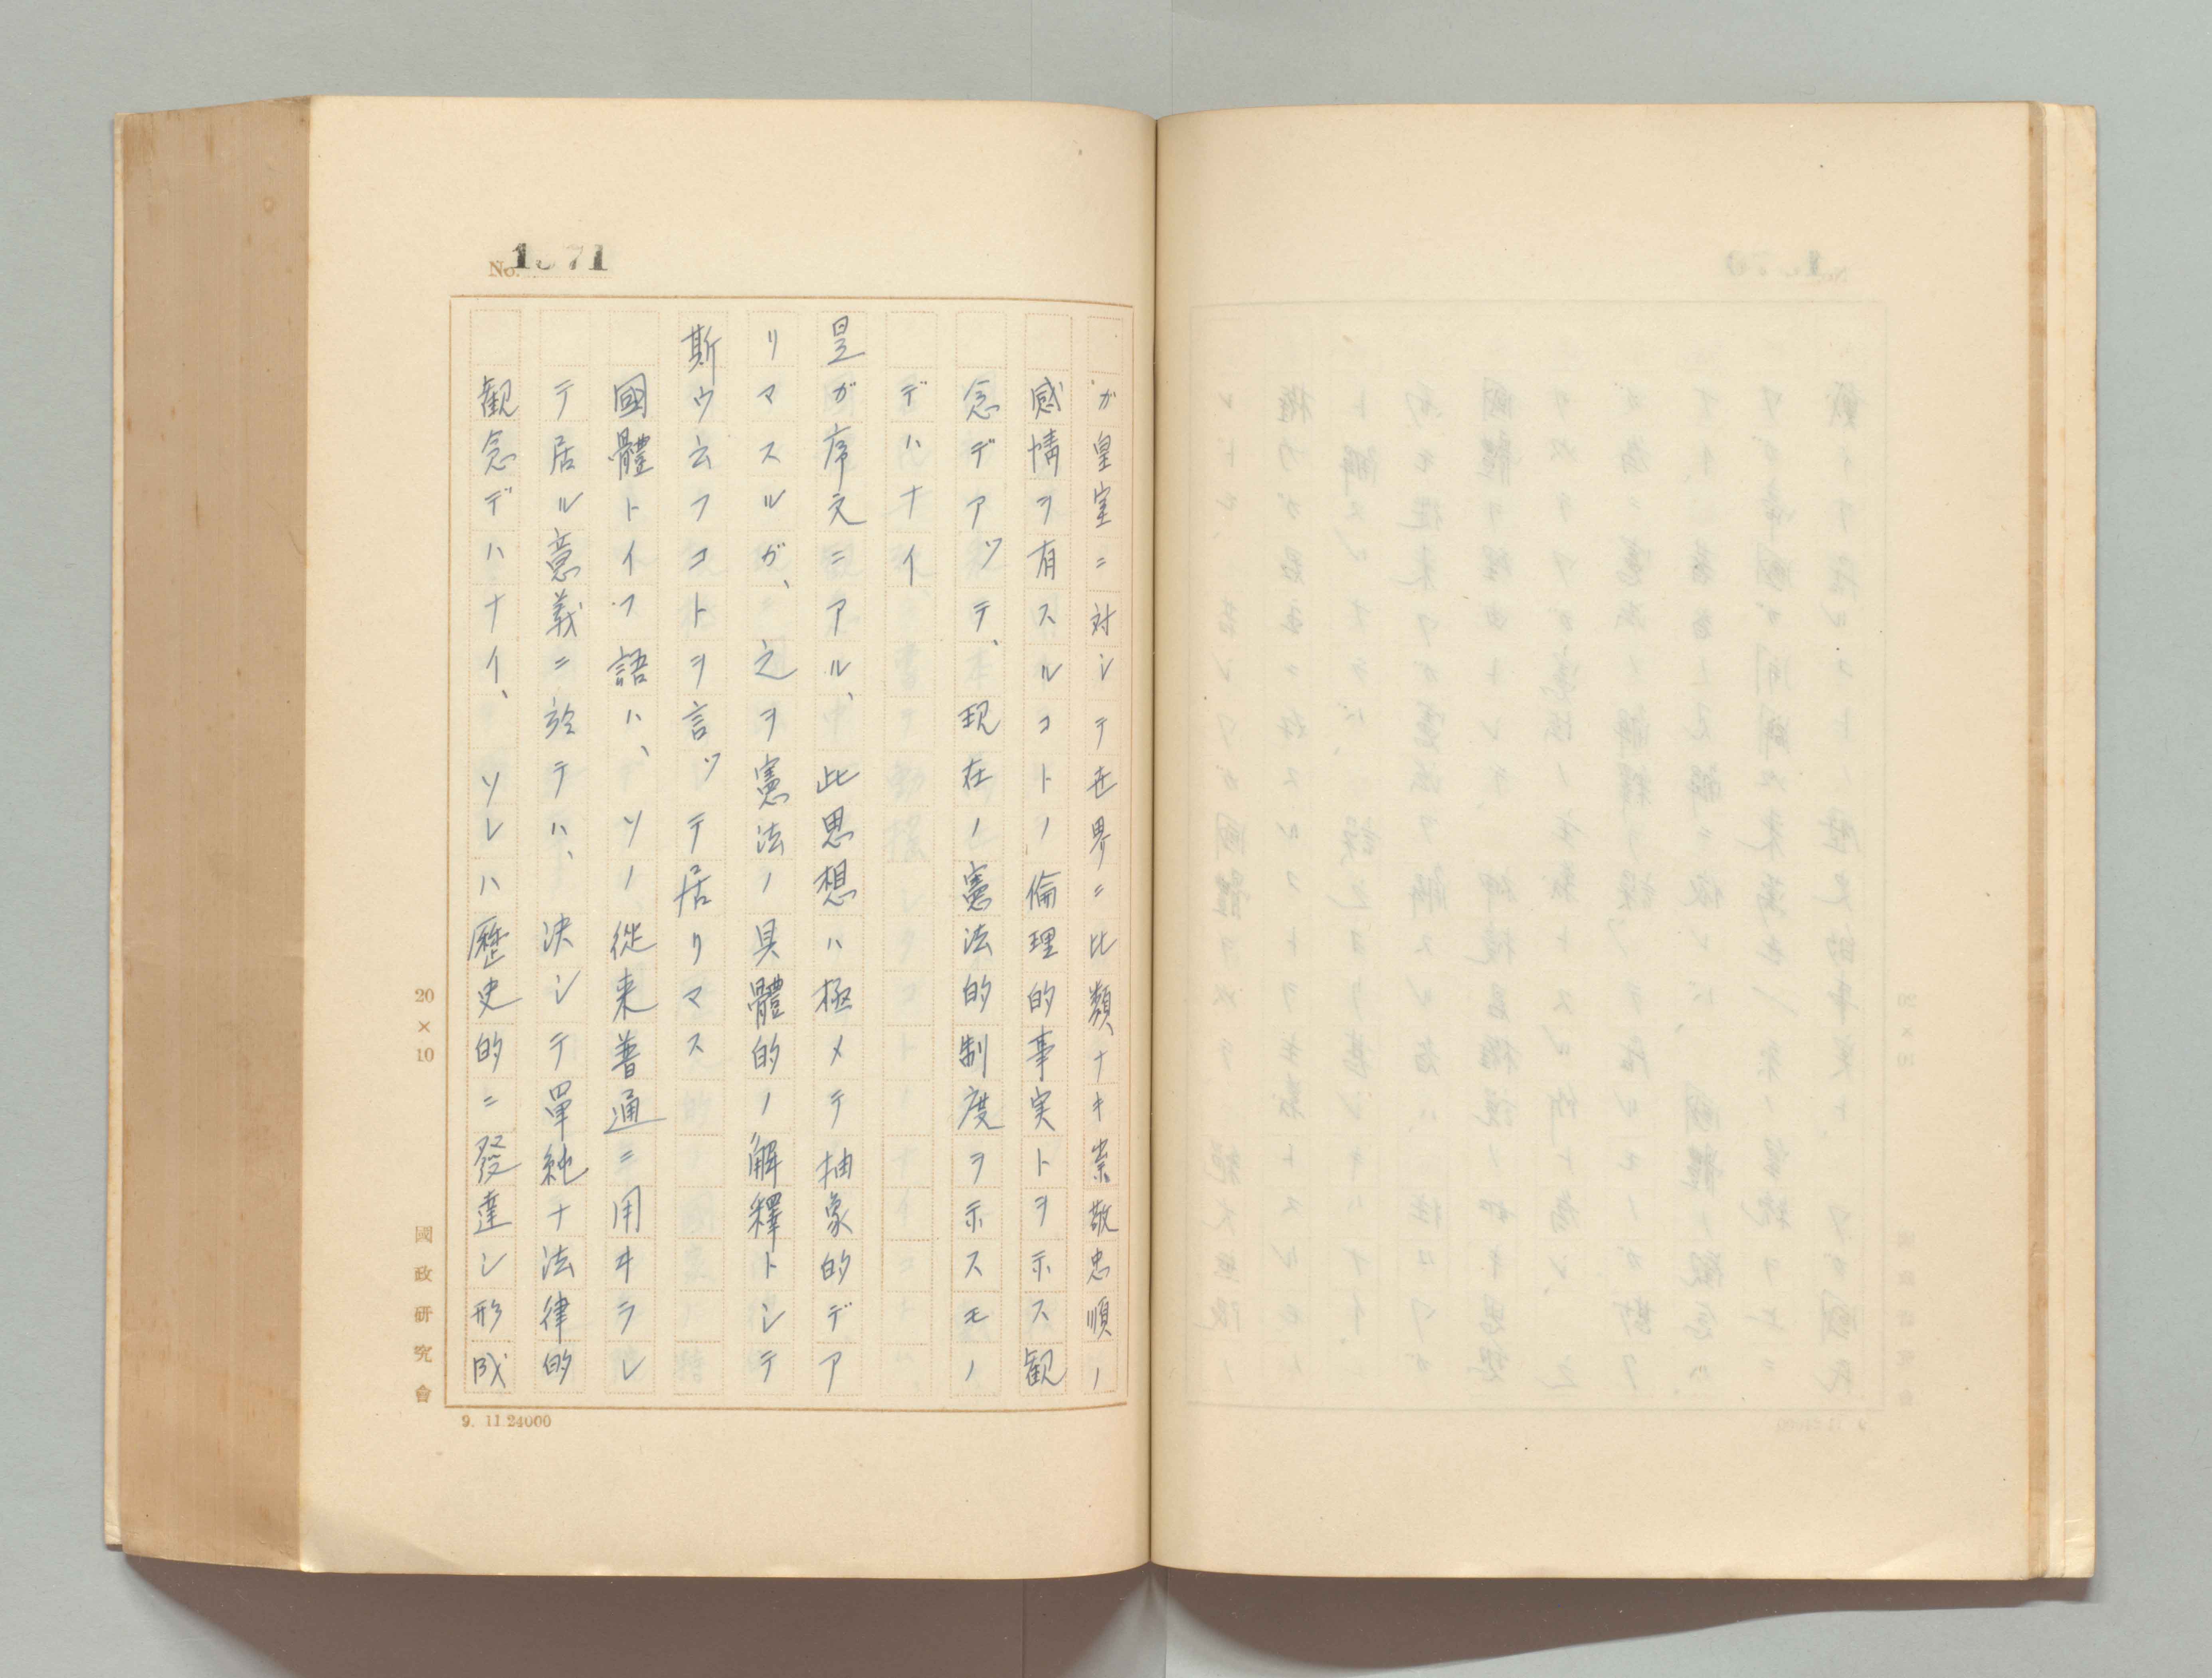 No. 1371
ガ皇室ニ対シテ世界ニ比類ナキ崇敬忠順ノ
感情ヲ有スルコトノ倫理的事実トヲ示ス観
念デアツテ、現在ノ憲法的制度ヲ示スモノ
デハナイ
是ガ序文ニアル、此思想ハ極メテ抽象的デア
リマスルガ、之ヲ憲法ノ具體的ノ解釋トシテ
斯ウ云フコトヲ言ツテ居リマス
國體トイフ語ハ、ソノ從来普通ニ用ヰラレ
テ居ル意義ニ於テハ、決シテ單純ナ法律的
観念デハナイ、ソレハ歴史的ニ發達シ形成
20×10
國政研究會
9. 11.24000